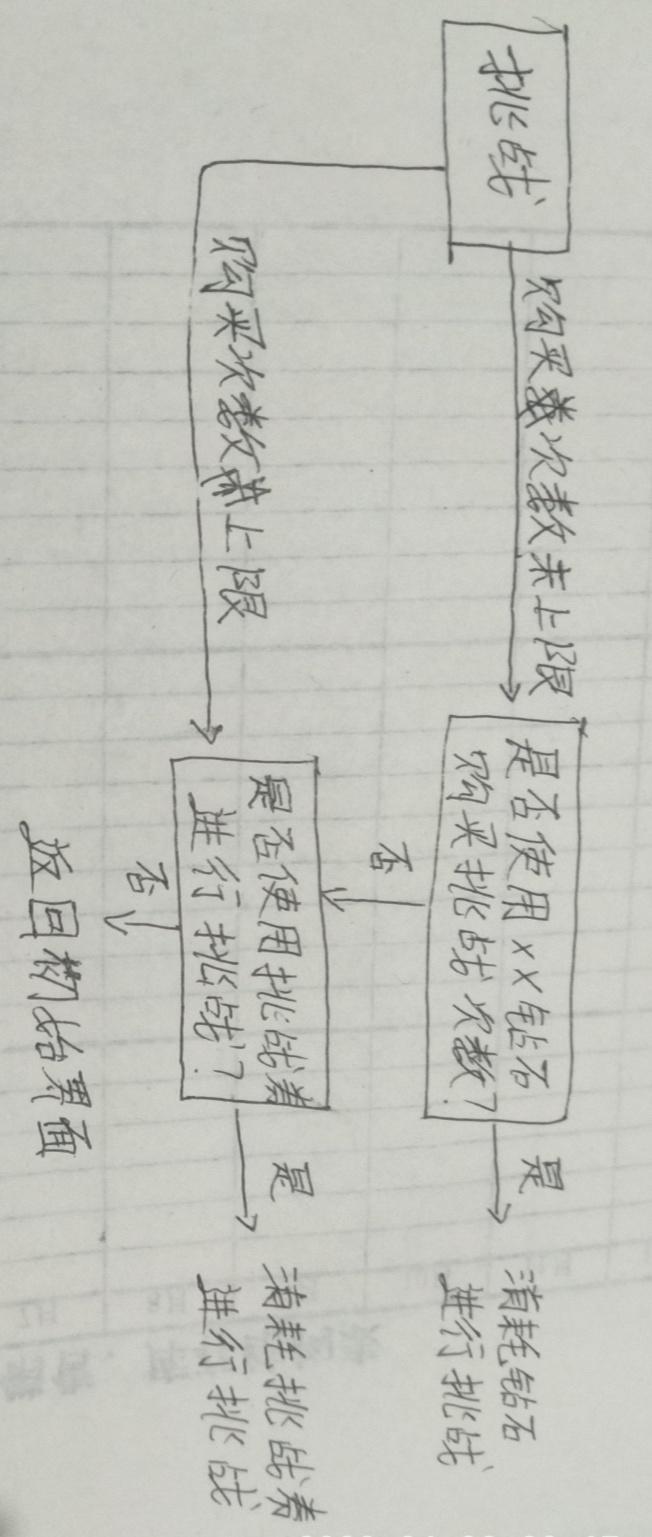 挑战
购买次数未上限
是否使用xx钻石
购买挑战次数?
是
消耗钻石
进行挑战
否
购买次数上限
是否使用挑战券
进行挑战?
是
消耗挑战券
进行挑战
否
返回初始界面